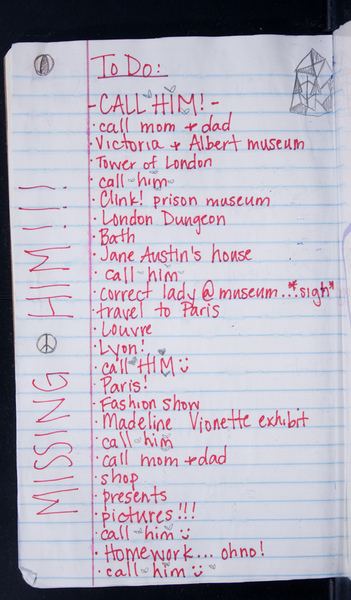 To Do:
- CALL HIM! -
· call mom + dad
· Victoria + Albert museum
· Tower of London
· call him
· Clink! prison museum
· London Dungeon
· Bath
· Jane Austin's house
· call him
· correct lady @ museum... *sigh*
· travel to Paris
· Louvre
· Lyon!
· call HIM
· Paris!
· Fashion show
· Madeline Vionette exhibit
· call him
· call mom + dad
· shop
· presents
· pictures!!!
· call him
· Homework... ohno!
· call him
MISSING HIM!!!